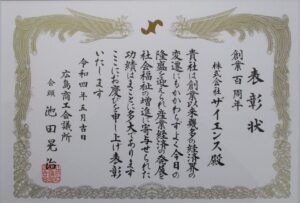 表彰状
創業百周年
株式会社サイエンス殿
貴社は創業以来幾多の経済界の
変遷にもかかわらずよく今日の
隆盛を迎えられ産業経済の発展と
社会福祉の増進に寄与せられた
功績はまことに多大であります
ここにお慶びを申し上げ表彰
いたします
令和四年 月吉日
広島商工会議所
会頭 池田晃治